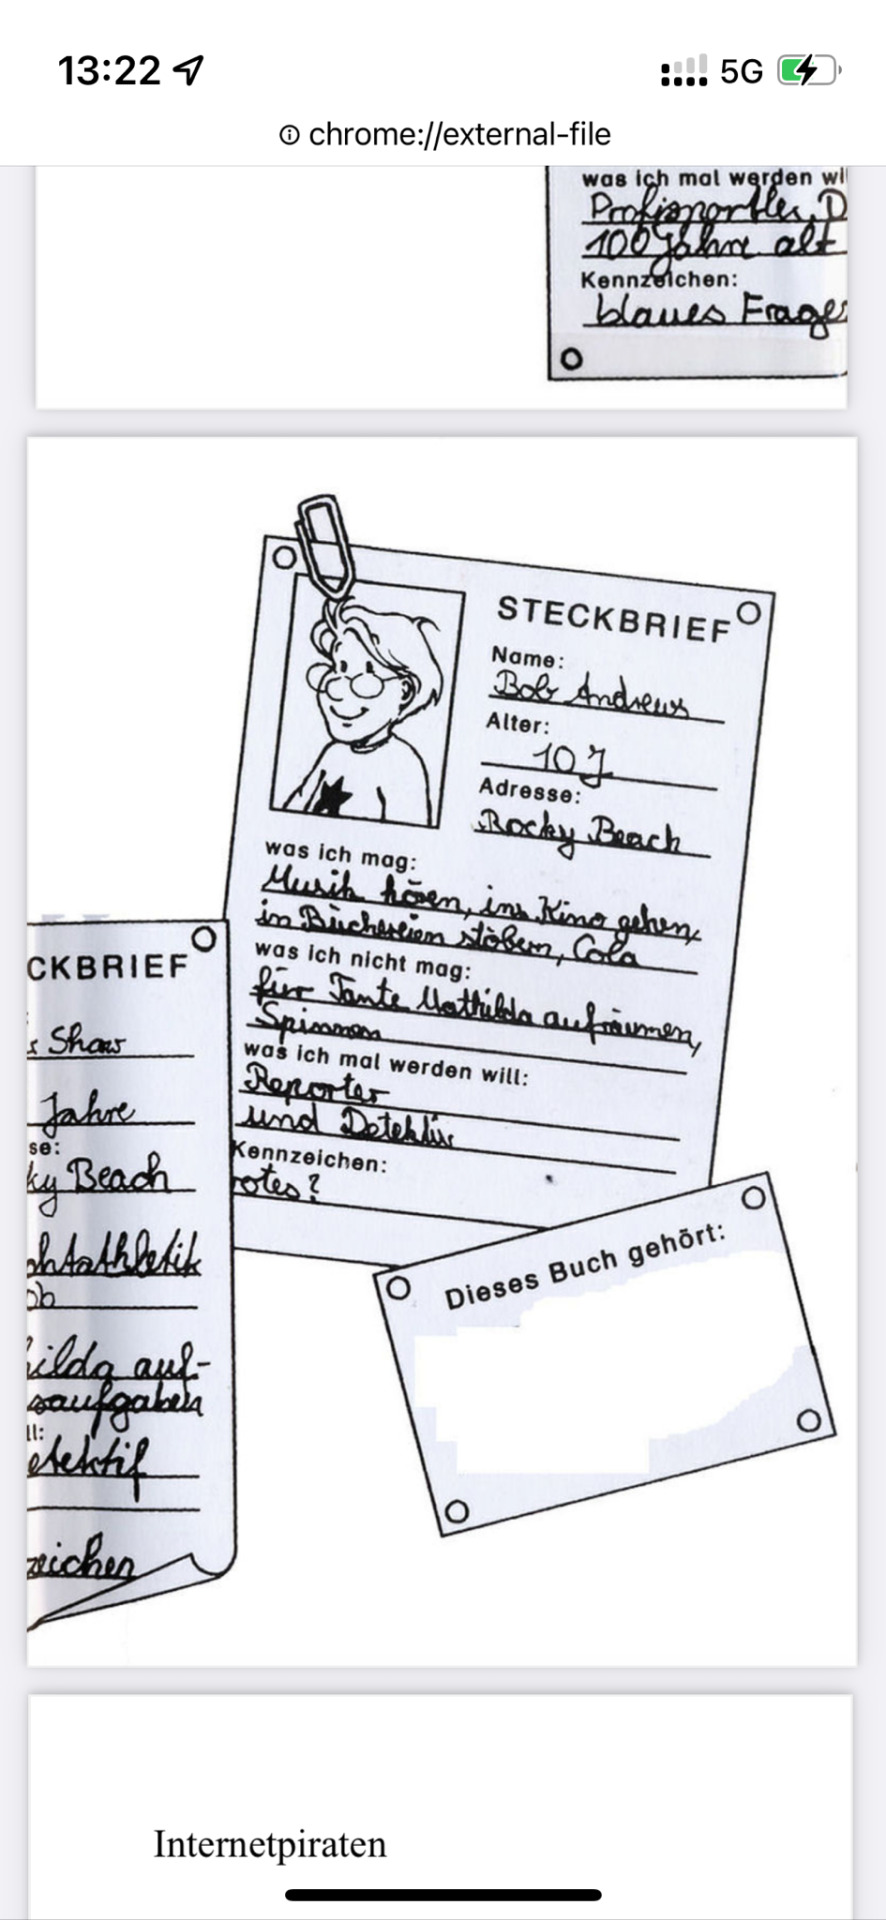 13:22
5G
chrome://external-file
was ich mal werden wi
Profisportler, D
100 Jahre alt
Kennzeichen:
blaues Frage
STECKBRIEF
Name:
Bob Andrews
Alter:
10 J
Adresse:
Rocky Beach
was ich mag:
Musik hören, ins Kino gehen,
in Büchereien stöbern, Cola
was ich nicht mag:
für Tante Mathilda aufräumen,
Spinnen
was ich mal werden will:
Reporter
und Detektiv
Kennzeichen:
rotes ?
CKBRIEF
s Shaw
Jahre
se:
ky Beach
chtathletik
ob
hilda auf-
saufgaben
ll:
etektif
zeichen
Dieses Buch gehört:
Internetpiraten